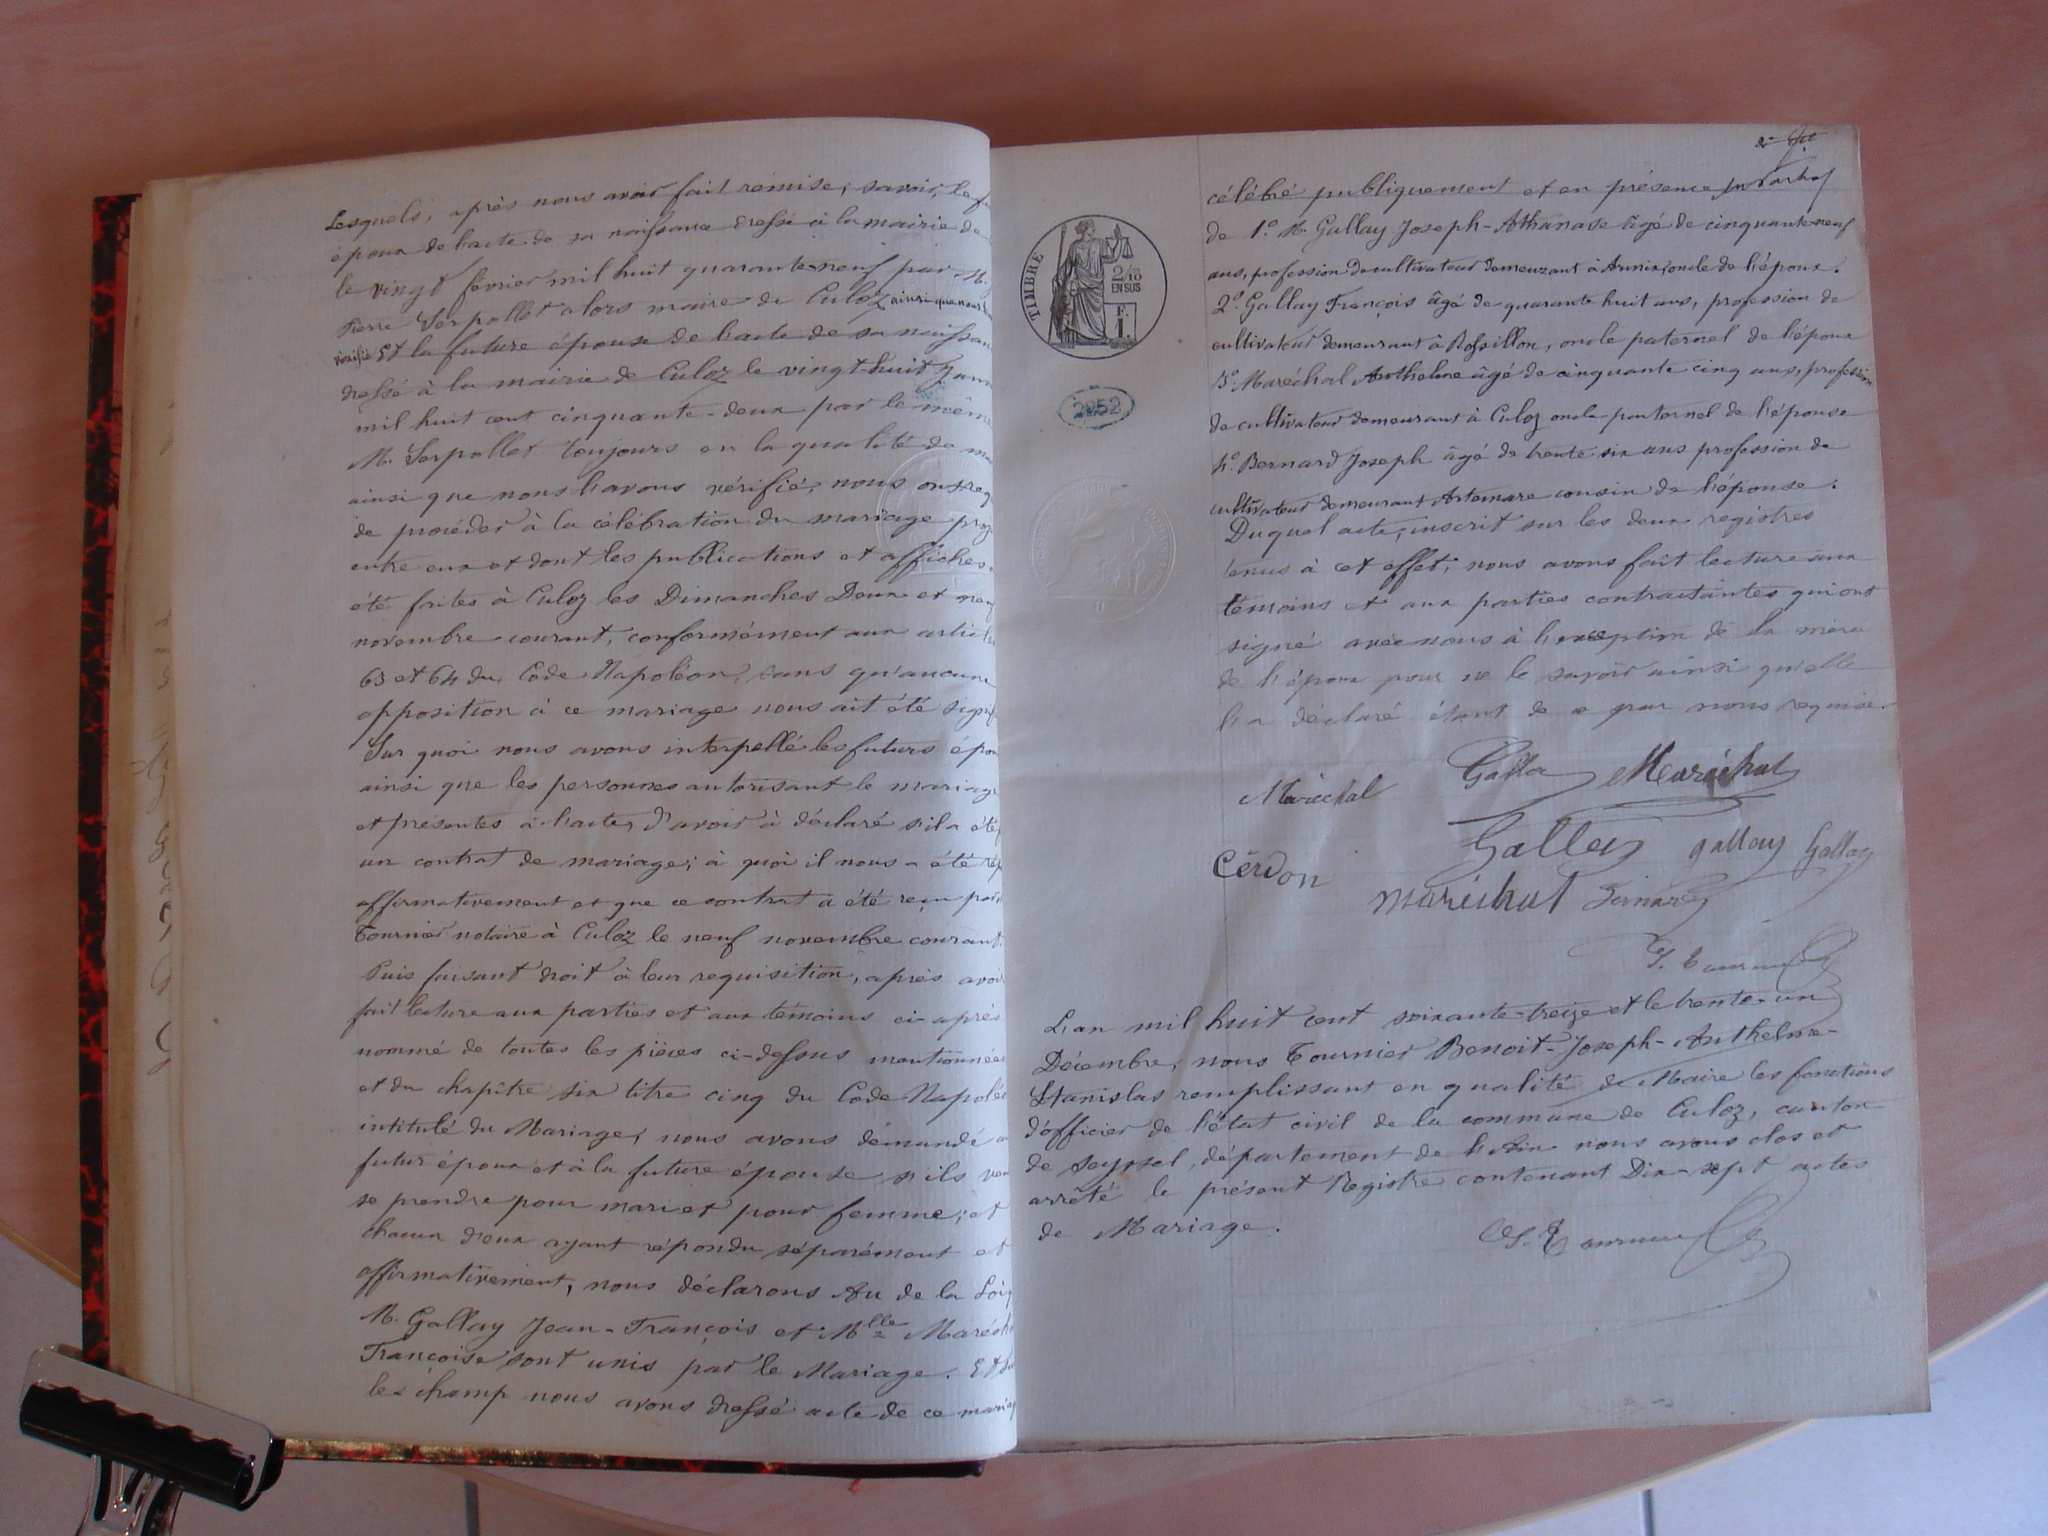 Lesquels, après nous avoir fait remise, savoir, le
époux de l'acte de sa naissance dressé à la mairie de
le vingt février mil huit quarante-neuf par M.
Pierre Serpollet alors maire de Culoz ainsi que nous
vérifié Et la future épouse de l'acte de sa naissan
dressé à la mairie de Culoz le vingt-huit Janv
mil huit cent cinquante-deux par le même
M. Serpollet toujours en la qualité de m
ainsi que nous l'avons vérifié, nous ont req
de procéder à la célébration du mariage proj
entre eux et dont les publications et affiches
été faites à Culoz les Dimanches Deux et neuf
novembre courant, conformément aux articles
63 et 64 du Code Napoléon, sans qu'aucune
opposition à ce mariage nous ait été signif
Sur quoi nous avons interpellé les futurs épou
ainsi que les personnes autorisant le mariage
et présentes à l'acte, d'avoir à déclaré s'il a été
un contrat de mariage; à quoi il nous a été rép
affirmativement et que ce contrat a été reçu par
Tournier notaire à Culoz le neuf novembre courant.
Puis faisant droit à leur requisition, après avoir
fait lecture aux parties et aux témoins ci-après
nommé de toutes les pièces ci-dessus mentionnées
et du chapître six titre cinq du Code Napoléo
intitulé du Mariage, nous avons démandé a
futur époux et à la future épouse s'ils veu
se prendre pour mari et pour femme; et
chacun d'eux ayant répondu séparément et
affirmativement, nous déclarons Au de la Loi
M. Gallay Jean-François et Mlle Maréch
Françoise sont unis par le Mariage. Et su
le champ nous avons dressé acte de ce mariag
célébré publiquement et en présence
de 1º M. Gallay Joseph-Athanase âgé de cinquante-neuf
ans, profession de cultivateur demeurant à oncle de l'époux.
2º Gallay François âgé de quarante huit ans, profession de
cultivateur demeurant à Rossillon, oncle paternel de l'époux
3º Maréchal Anthelme âgé de cinquante cinq ans, profession
de cultivateur demeurant à Culoz oncle paternel de l'épouse
4º Bernard Joseph âgé de trente six ans profession de
cultivateur demeurant Artemare cousin de l'épouse.
Duquel acte, inscrit sur les deux registres
tenus à cet effet, nous avons fait lecture aux
témoins et aux parties contractantes qui ont
signé avec nous à l'exception de la mère
de l'époux pour ne le savoir ainsi qu'elle
l'a déclaré étant de ce par nous requise.
TIMBRE
2/10
EN SUS
F.
1.
2952
Maréchal Galla Maréchal
Gallay gallay Gallay
Cerdon
maréchal Bernard
L'an mil huit cent soixante-treize et le trente-un
Décembre, nous Tournier Benoit-Joseph-Anthelme-
Stanislas remplissant en qualité de Maire les fonctions
d'officier de l'état civil de la commune de Culoz, canton
de Seyssel, département de l'Ain nous avons clos et
arrêté le présent Registre contenant Dix-sept actes
de Mariage.